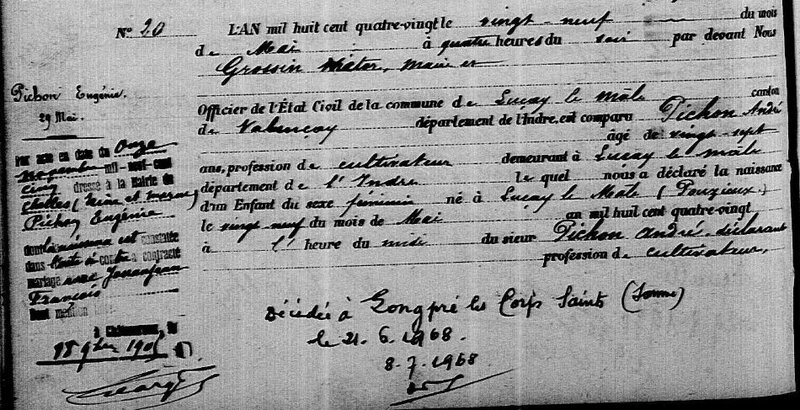 N° 20
L'AN mil huit cent quatre-vingt le vingt-neuf du mois
de Mai à quatre heures du soir par devant Nous
Grossin, Maire et
Officier de l'État Civil de la commune de Luçay le Mâle canton
de Valençay département de l'Indre, est comparu Pichon André
âgé de vingt-sept
ans, profession de cultivateur demeurant à Luçay le Mâle
département de l'Indre le quel nous a déclaré la naissance
d'un Enfant du sexe féminin né à Luçay le Mâle (Pouzieux)
le vingt neuf du mois de Mai an mil huit cent quatre-vingt
à l'heure du midi du sieur Pichon André déclarant
profession de cultivateur,
Pichon Eugénie.
29 Mai.
Par acte en date du Onze
Novembre mil neuf cent
cinq dressé à la mairie de
Chelles (Seine et Marne)
Pichon Eugénie
dont la naissance est constatée
dans l'acte ci-contre a contracté
mariage avec
François
Dont mention
à Châteauroux, le
18 9bre 1905
Décédée à Longpré les Corps Saints (Somme)
le 21.6.1968.
8-7-1968